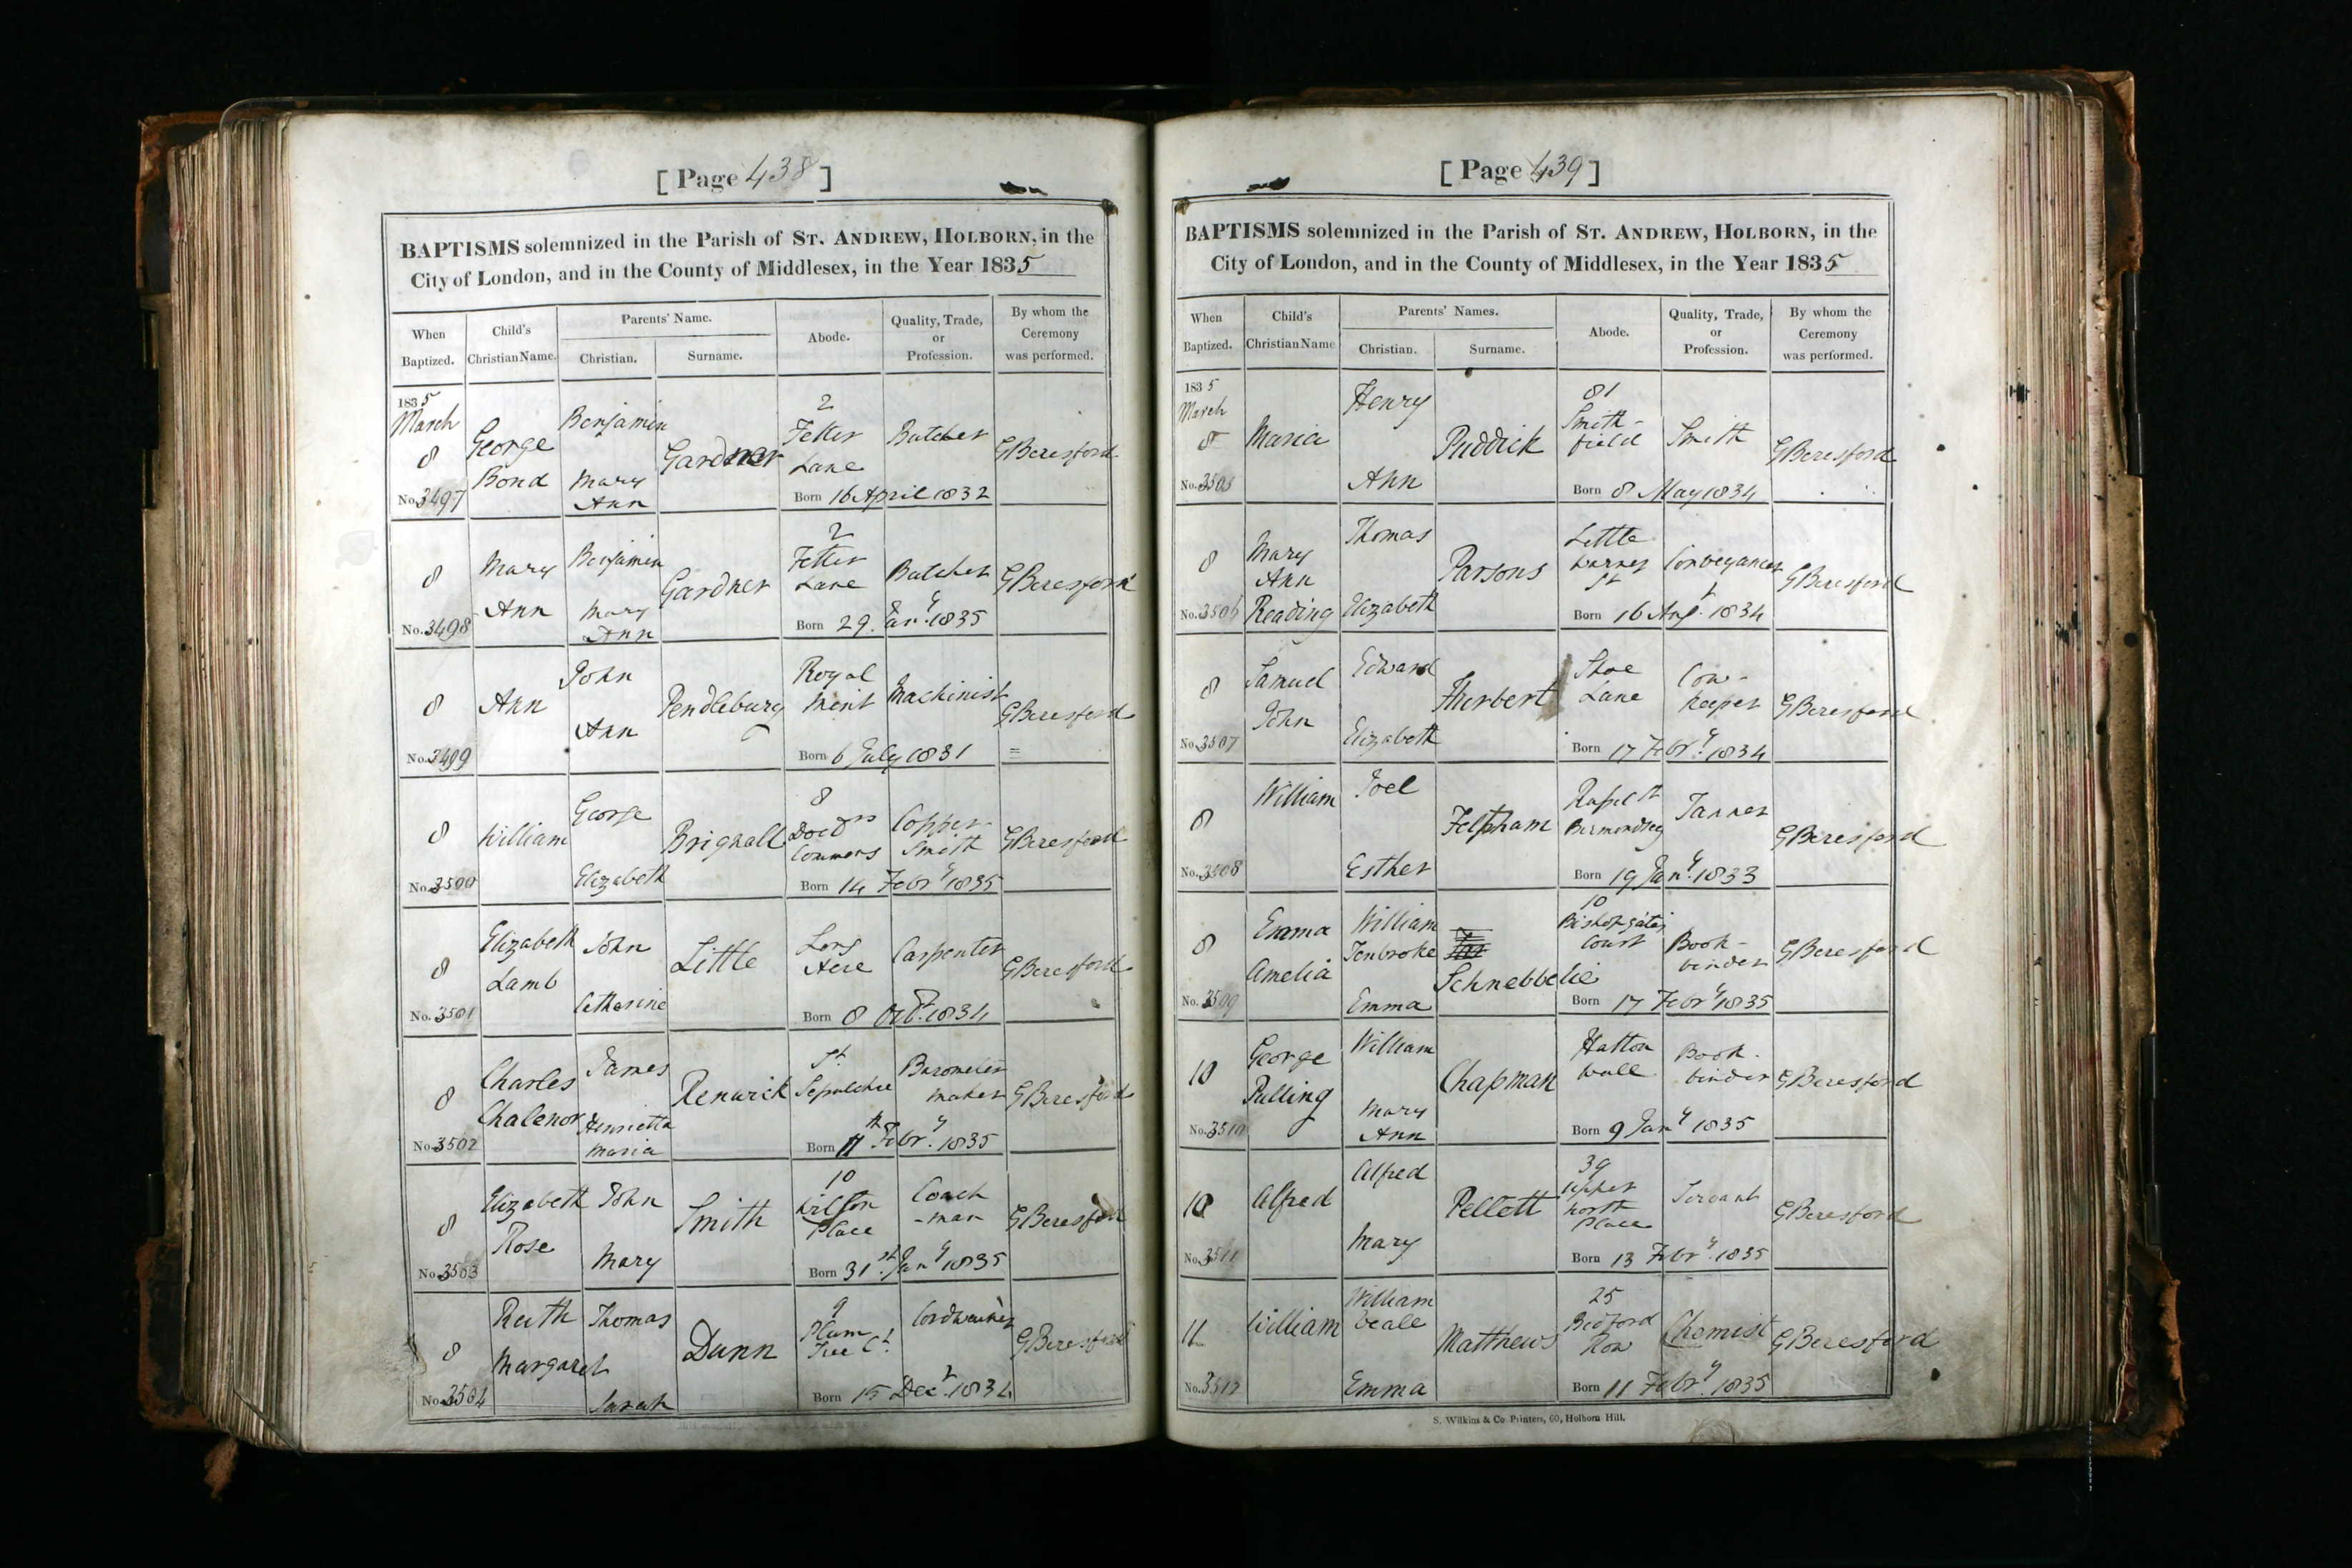 [ Page 438 ]
BAPTISMS solemnized in the Parish of ST. ANDREW, HOLBORN, in the
City of London, and in the County of Middlesex, in the Year 1835
When Baptized.
Child's Christian Name.
Parents' Name.
Christian.
Surname.
Abode.
Quality, Trade, or Profession.
By whom the Ceremony was performed.
1835 March 8 No. 3497
George Bond
Benjamin Mary Ann
Gardner
2 Fetter Lane
Butcher
G Beresford
Born 16 April 1832
8 No. 3498
Mary Ann
Benjamin Mary Ann
Gardner
2 Fetter Lane
Butcher
G Beresford
Born 29 Jany 1835
8 No. 3499
Ann
John Ann
Pendlebury
Royal Mint
Machinist
G Beresford
Born 6 July 1831
8 No. 3500
William
George Elizabeth
Brignall
8 Doctrs Commons
Copper Smith
G Beresford
Born 14 Febry 1835
8 No. 3501
Elizabeth Lamb
John Catherine
Little
Long Acre
Carpenter
G Beresford
Born 8 Oct. 1834
8 No. 3502
Charles Chalenor
James Henrietta Maria
Renwick
St Sepulchre
Barometer maker
G Beresford
Born 11th Febry 1835
8 No. 3503
Elizabeth Rose
John Mary
Smith
10 Wilson Place
Coach-man
G Beresford
Born 31st Jany 1835
8 No. 3504
Ruth Margaret
Thomas Sarah
Dunn
9 Plum Tree Ct
Cordwainer
G Beresford
Born 15 Decr 1834
[ Page 439 ]
BAPTISMS solemnized in the Parish of ST. ANDREW, HOLBORN, in the
City of London, and in the County of Middlesex, in the Year 1835
When Baptized.
Child's Christian Name
Parents' Names.
Christian.
Surname.
Abode.
Quality, Trade, or Profession.
By whom the Ceremony was performed.
1835 March 8 No. 3505
Maria
Henry Ann
Puddick
81 Smith-field
Smith
G Beresford
Born 8 May 1834
8 No. 3506
Mary Ann Reading
Thomas Elizabeth
Parsons
Little Warner St
Conveyancer
G Beresford
Born 16 Augt 1834
8 No. 3507
Samuel John
Edward Elizabeth
Herbert
Shoe Lane
Cow-keeper
G Beresford
Born 17 Febry 1834
8 No. 3508
William
Joel Esther
Feltham
Russel St Bermondsey
Tanner
G Beresford
Born 19 Jany 1833
8 No. 3509
Emma Amelia
William Tenbroke Emma
Schnebbelie
10 Bishopgates Court
Book-binder
G Beresford
Born 17 Febry 1835
10 No. 3510
George Pulling
William Mary Ann
Chapman
Hatton Wall
Book-binder
G Beresford
Born 9 Jany 1835
10 No. 3511
Alfred
Alfred Mary
Pellett
39 Upper North Place
Servant
G Beresford
Born 13 Febry 1835
11 No. 3512
William
William Veale Emma
Matthews
25 Bedford Row
Chemist
G Beresford
Born 11 Febry 1835
S. Wilkins & Co Printers, 60, Holborn Hill.